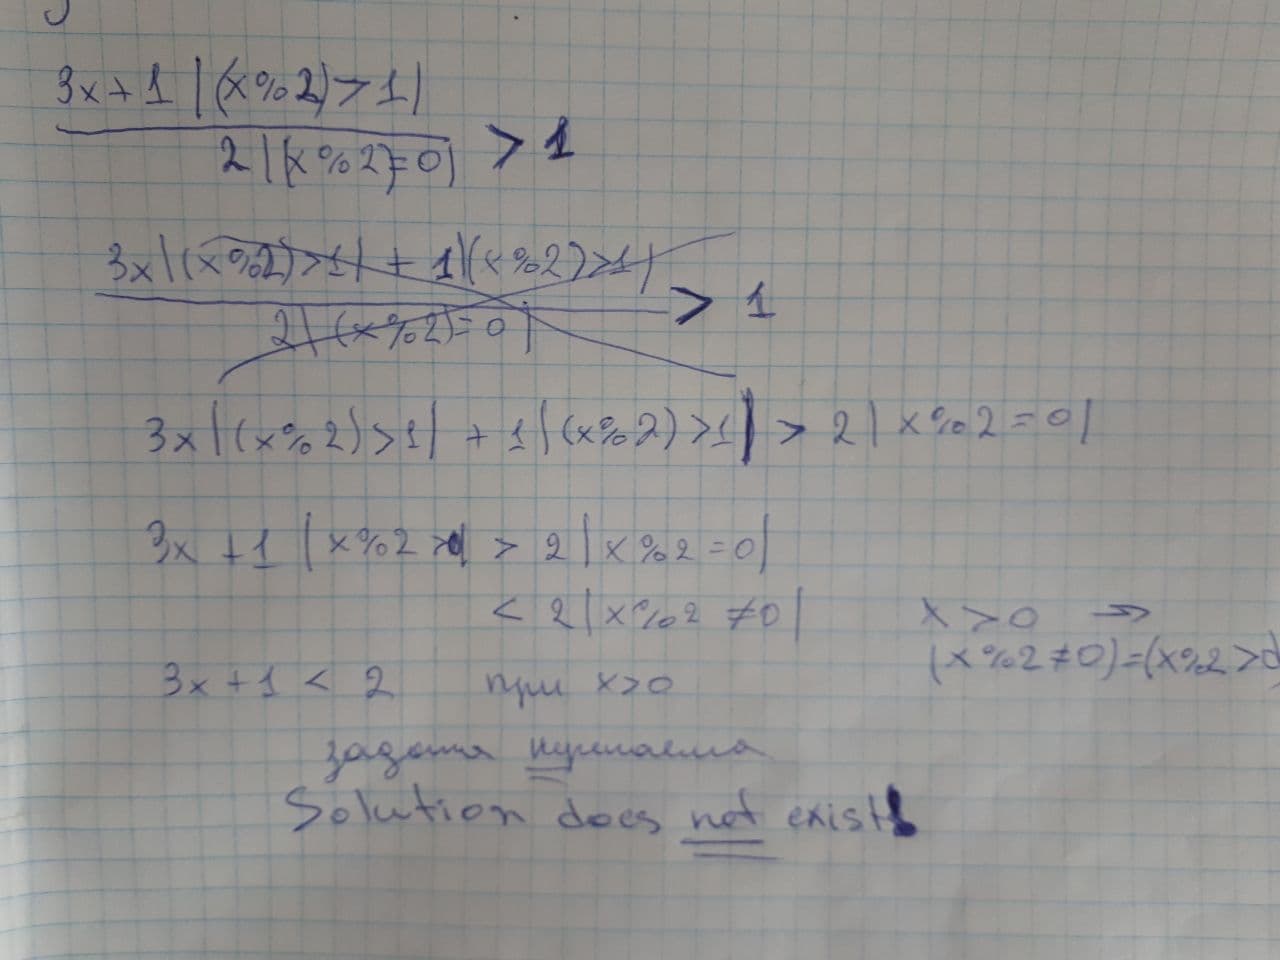 3x+1 |(x%2)>1|
2|(x%2)=0| > 1
3x|(x%2)>1| + 1|(x%2)>1|
2|(x%2)=0| > 1
3x|(x%2)>1| + 1|(x%2)>1| > 2|x%2=0|
3x+1 |x%2> > 2|x%2=0|
< 2|x%2≠0| x>0 →
(x%2≠0)=(x%2>
3x+1 < 2 при x>0
задача
Solution does not exist!